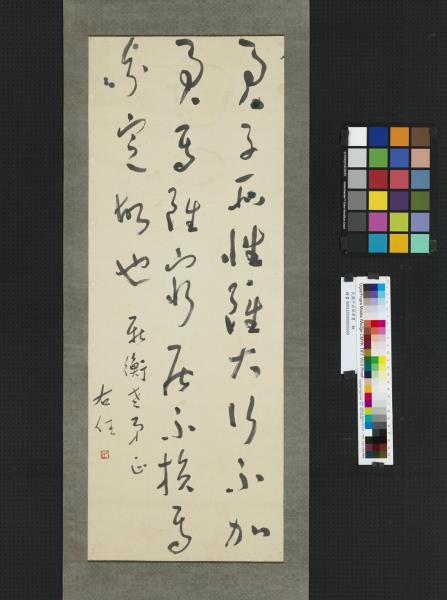 君子所性雖大行不加
焉雖窮居不損焉
分定故也
衡老弟正
右任